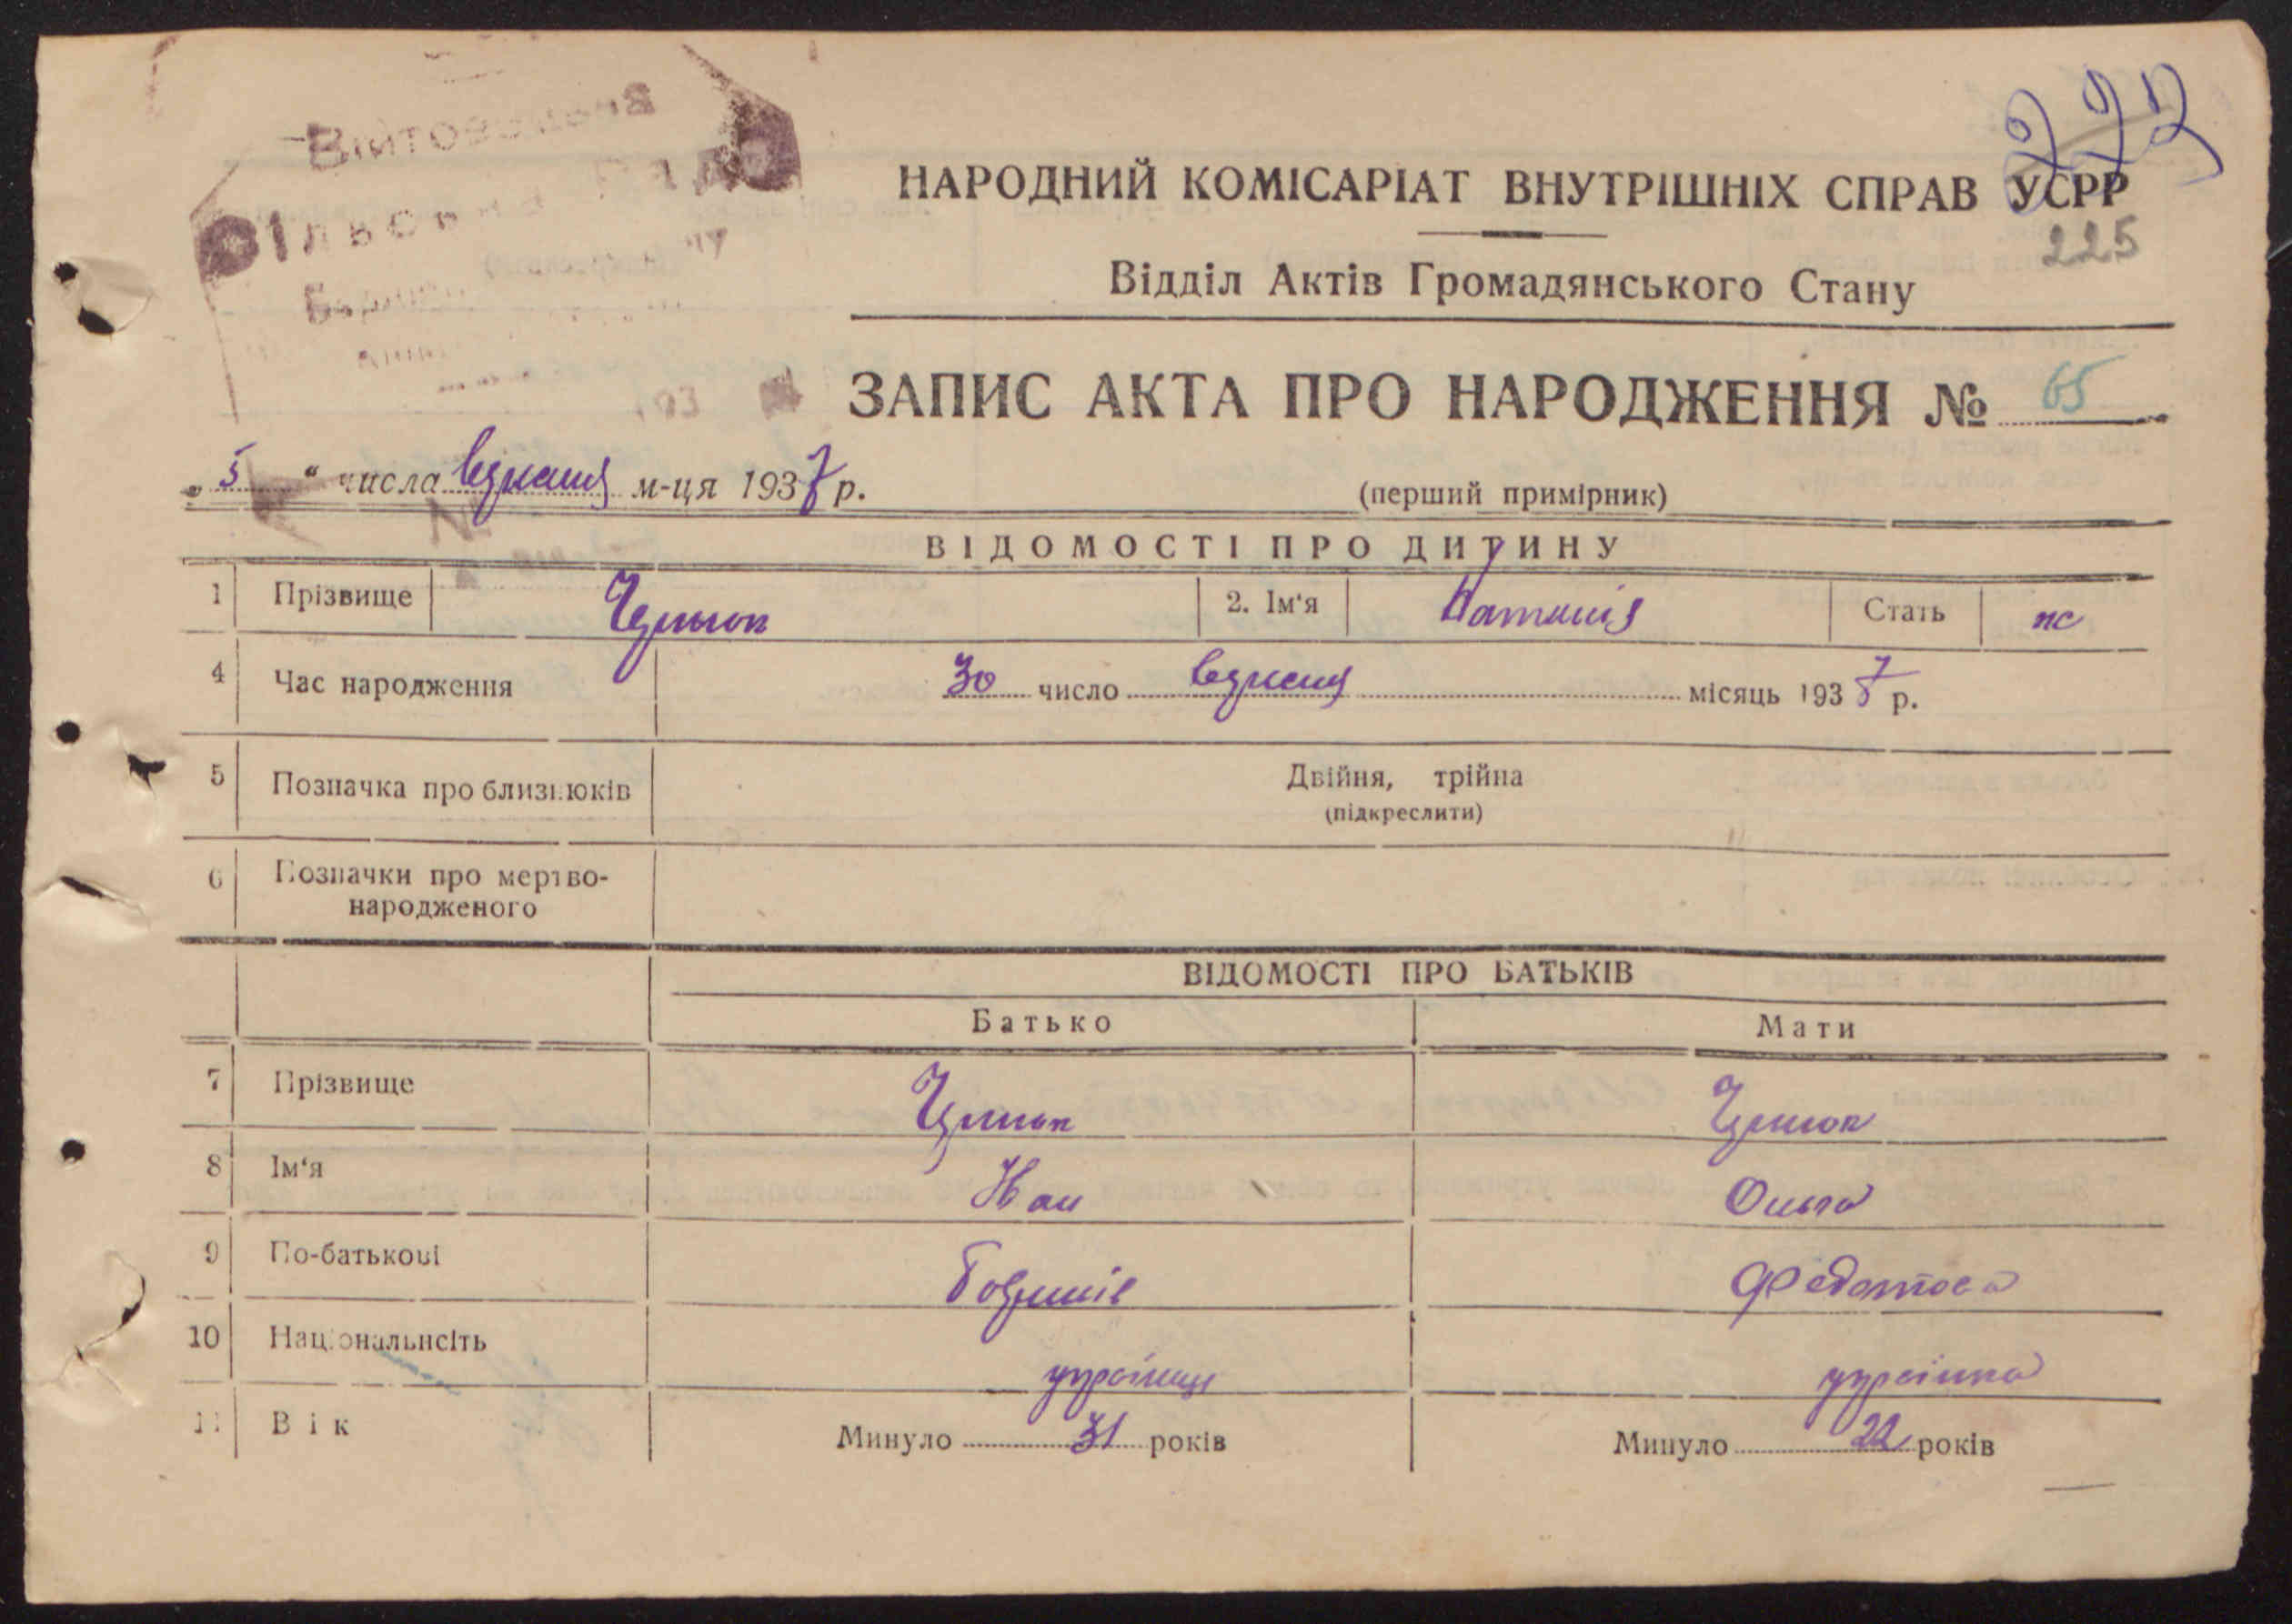 Війтовецька
Сільська Рада
193
225
НАРОДНИЙ КОМІСАРІАТ ВНУТРІШНІХ СПРАВ УСРР
Відділ Актів Громадянського Стану
ЗАПИС АКТА ПРО НАРОДЖЕННЯ № 65
„ 5 “ числа м-ця 1937 р.
(перший примірник)
ВІДОМОСТІ ПРО ДИТИНУ
1 Прізвище 2. Ім'я Стать жс
4 Час народження 30 число місяць 1937 р.
5 Позначка про близнюків Двійня, трійна
(підкреслити)
6 Позначки про мертво-
народженого
ВІДОМОСТІ ПРО БАТЬКІВ
Батько Мати
7 Прізвище
8 Ім'я Іван Ольга
9 По-батькові Федотова
10 Національнсіть українець українка
11 Вік Минуло 31 років Минуло 22 років